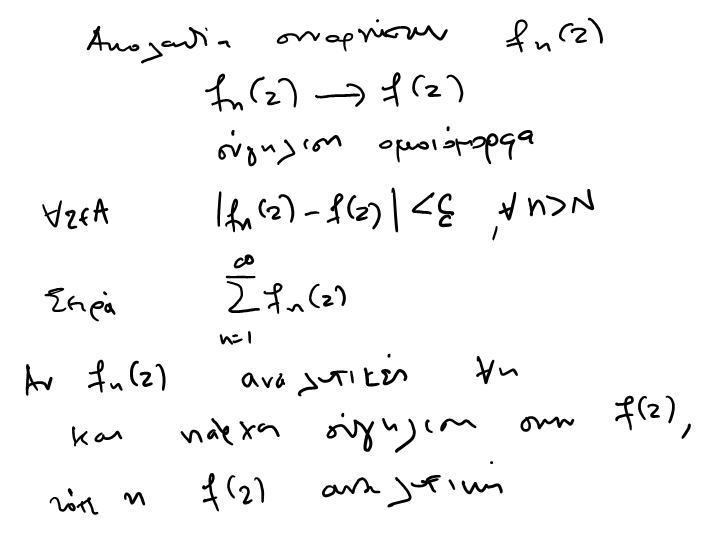 Ακολουθία συναρτήσεων fₙ(z)
fₙ(z) ⟶ f(z)
σύγκλιση ομοιόμορφα
∀z∈A |fₙ(z) - f(z)| < ε, ∀ n>N
Σειρά ∑_{n=1}^{∞} fₙ(z)
Αν fₙ(z) αναλυτικές ∀n
και υπάρχει σύγκλιση στην f(z),
τότε η f(z) αναλυτική